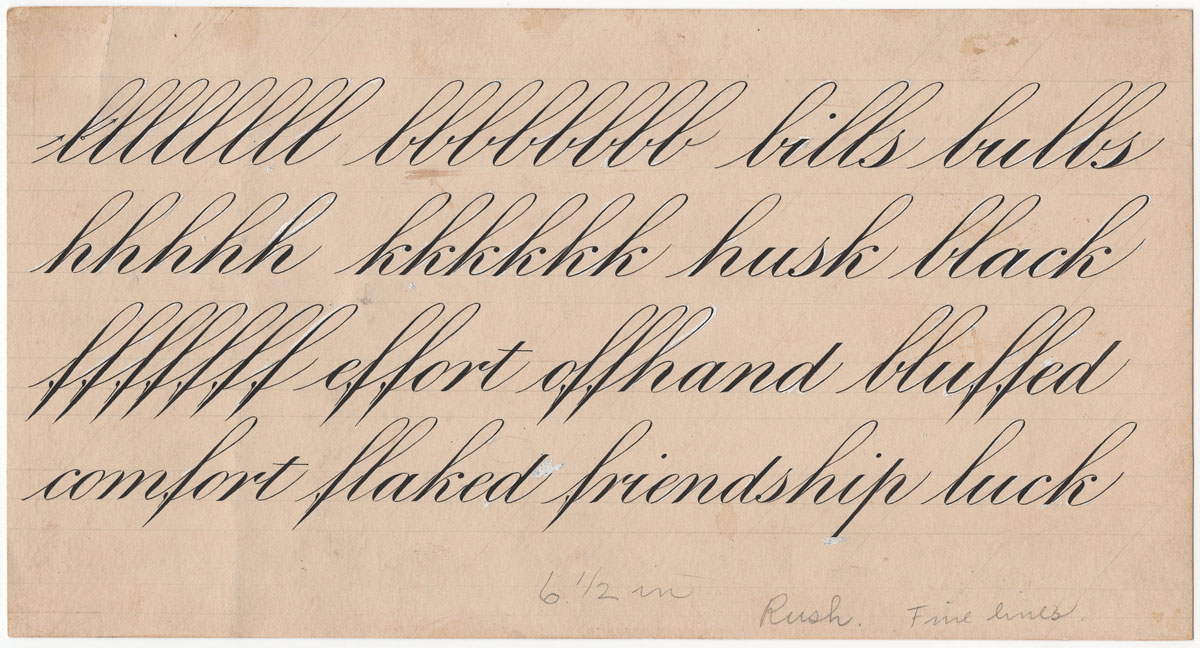 llllllll bbbbbbbb bills bulbs
hhhhh kkkkkk husk black
fffffff effort offhand bluffed
comfort flaked friendship luck
6 1/2 in
Rush. Fine lines.